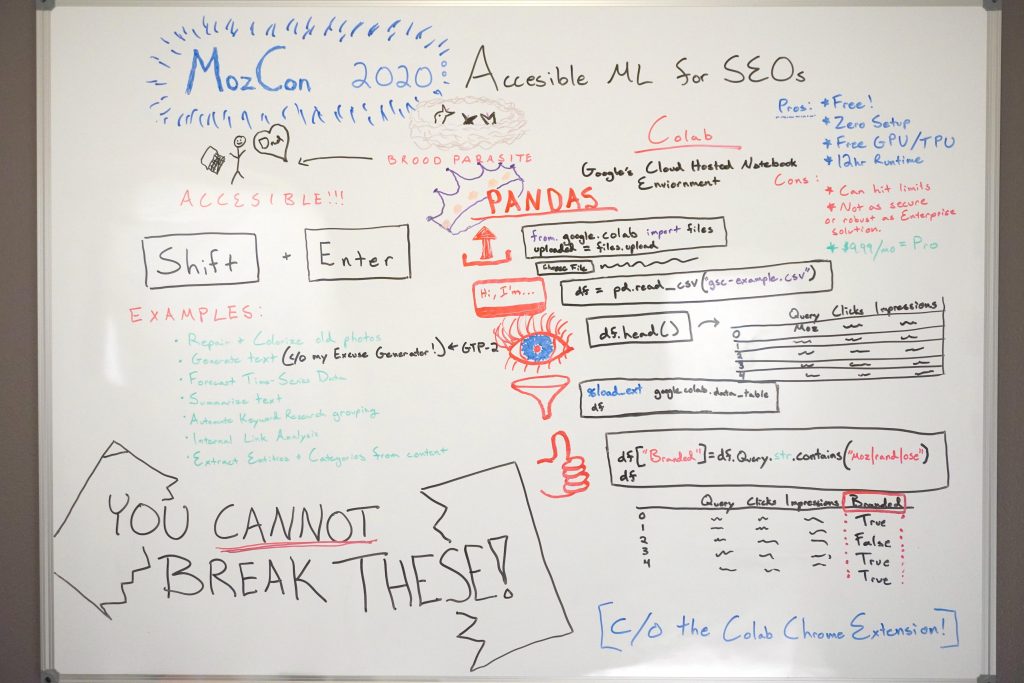 MozCon 2020
Accesible ML for SEOs
Dad
BROOD PARASITE
ACCESIBLE!!!
Shift + Enter
EXAMPLES:
• Repair + Colorize old photos
• Generate text (c/o my Excuse Generator!) ← GTP-2
• Forecast Time-Series Data
• Summarize text
• Automate Keyword Research grouping
• Internal Link Analysis
• Extract Entities + Categories from content
YOU CANNOT
BREAK THESE!
Colab
Google's Cloud Hosted Notebook
Enviornment
Pros:
* Free!
* Zero Setup
* Free GPU/TPU
* 12hr Runtime
Cons:
* Can hit limits
* Not as secure
or robust as Enterprise
solution.
* $9.99/mo = Pro
PANDAS
from google.colab import files
uploaded = files.upload
Choose File
Hi, I'm...
df = pd.read_csv("gsc-example.csv")
df.head()
Query Clicks Impressions
0 Moz
1
2
3
4
%load_ext google.colab.data_table
df
df["Branded"]=df.Query.str.contains("Moz|rand|ose")
df
Query Clicks Impressions Branded
0 True
1 False
2 True
3 True
4
[c/o the Colab Chrome Extension!]